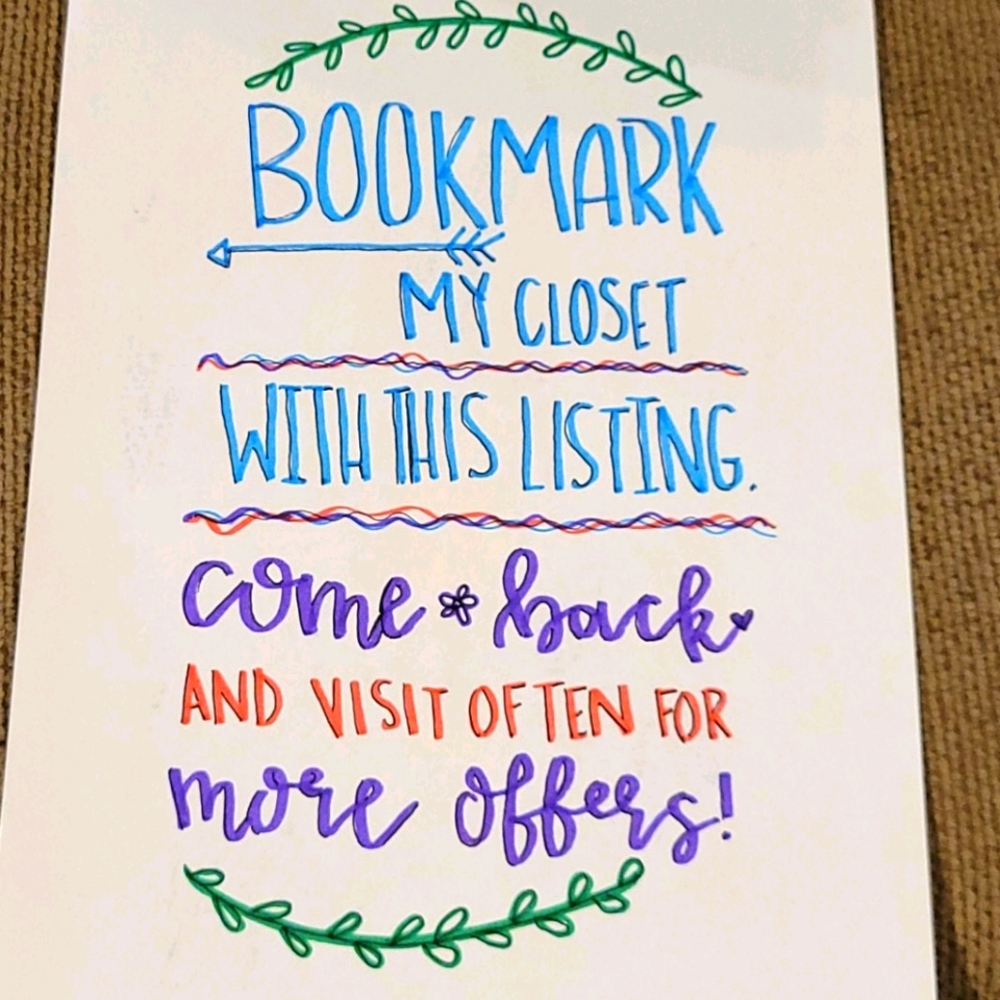 BOOKMARK
MY CLOSET
WITH THIS LISTING.
come back
AND VISIT OFTEN FOR
more offers!